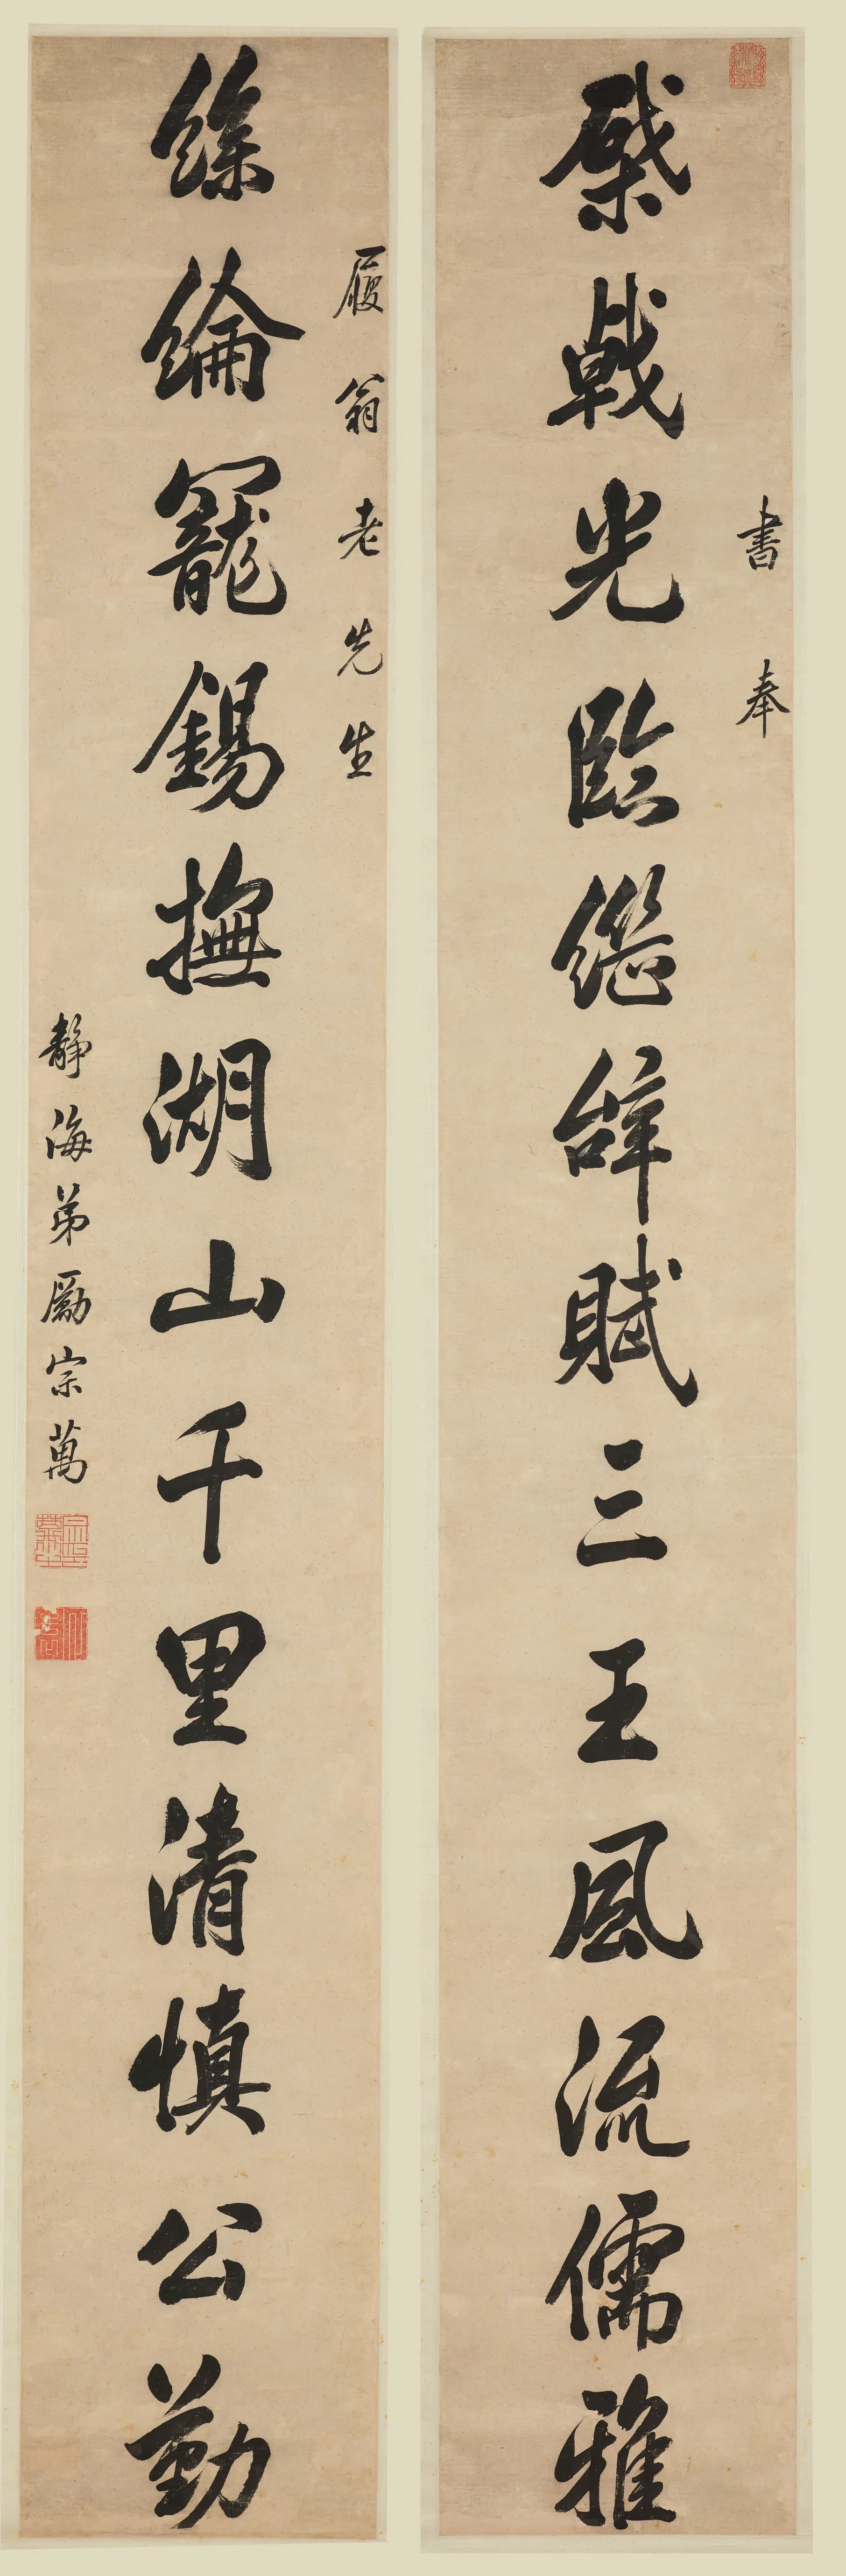 書奉
棨戟光臨繼辝賦三王風流儒雅
履翁老先生
絲綸寵錫撫湖山千里清慎公勤
靜海弟勵宗萬